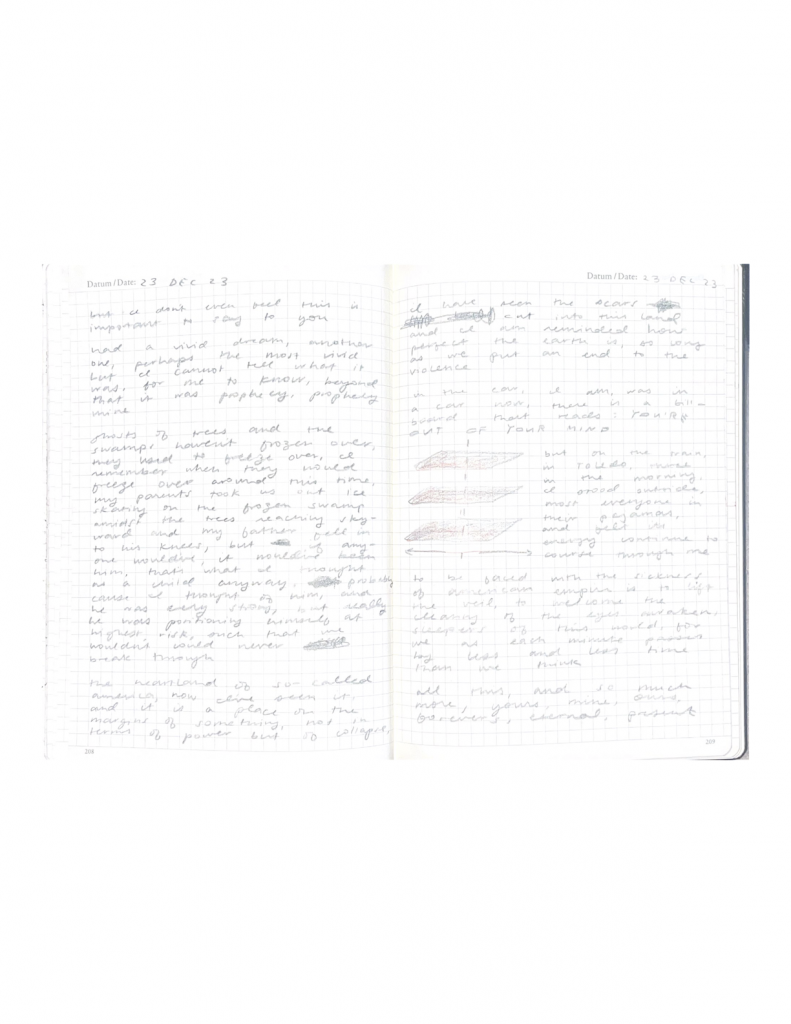 Datum / Date: 23 DEC 23
but I don't even feel this is
important to say to you
had a vivid dream, another
one, perhaps the most vivid
but I cannot tell what it
was, for me to know, beyond
that it was prophecy, prophecy
mine
ghosts of trees and the
swamps haven't frozen over,
they used to freeze over, I
remember when they would
freeze over around this time,
my parents took us out ice
skating on the frozen swamp
amidst the trees reaching sky-
ward and my father fell in
to his knees, but if any-
one would've, it would've been
him, thats what I thought
as a child anyway, probably
cause I thought of him, and
he was every strong, but really
he was positioning himself at
highest risk, such that we
wouldn't would never
break through
the heartland of so-called
america, now I've seen it.
and it is a place on the
margins of something, not in
terms of power but of collapse,
208
Datum / Date: 23 DEC 23
I have seen the scars
cut into this land
and I am reminded how
perfect the earth is, as long
as we put an end to the
violence
in the car, I am, was in
a car now, there is a bill-
board that reads: YOU'RE
OUT OF YOUR MIND
but on the train,
in TOLEDO, three
in the morning.
I stood outside,
most everyone in
their pajamas,
and felt
energy continue to
course through me
to be faced with the sickness
of american empire is to lift
the veil, to welcome the
cleaning of the eyes awaken,
sleepers of this world, for
we as each minute passes
have less and less time
than we think
all this, and so much
more, yours, mine, ours,
forever's, eternal, present
209